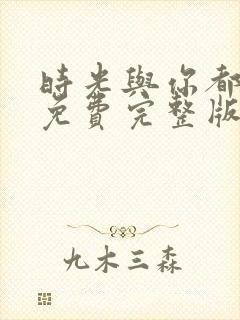 時光與你都
免費完整版
九木三森